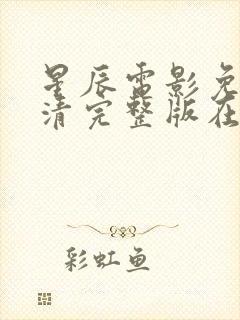 星辰电影免
清完整版在
彩虹鱼